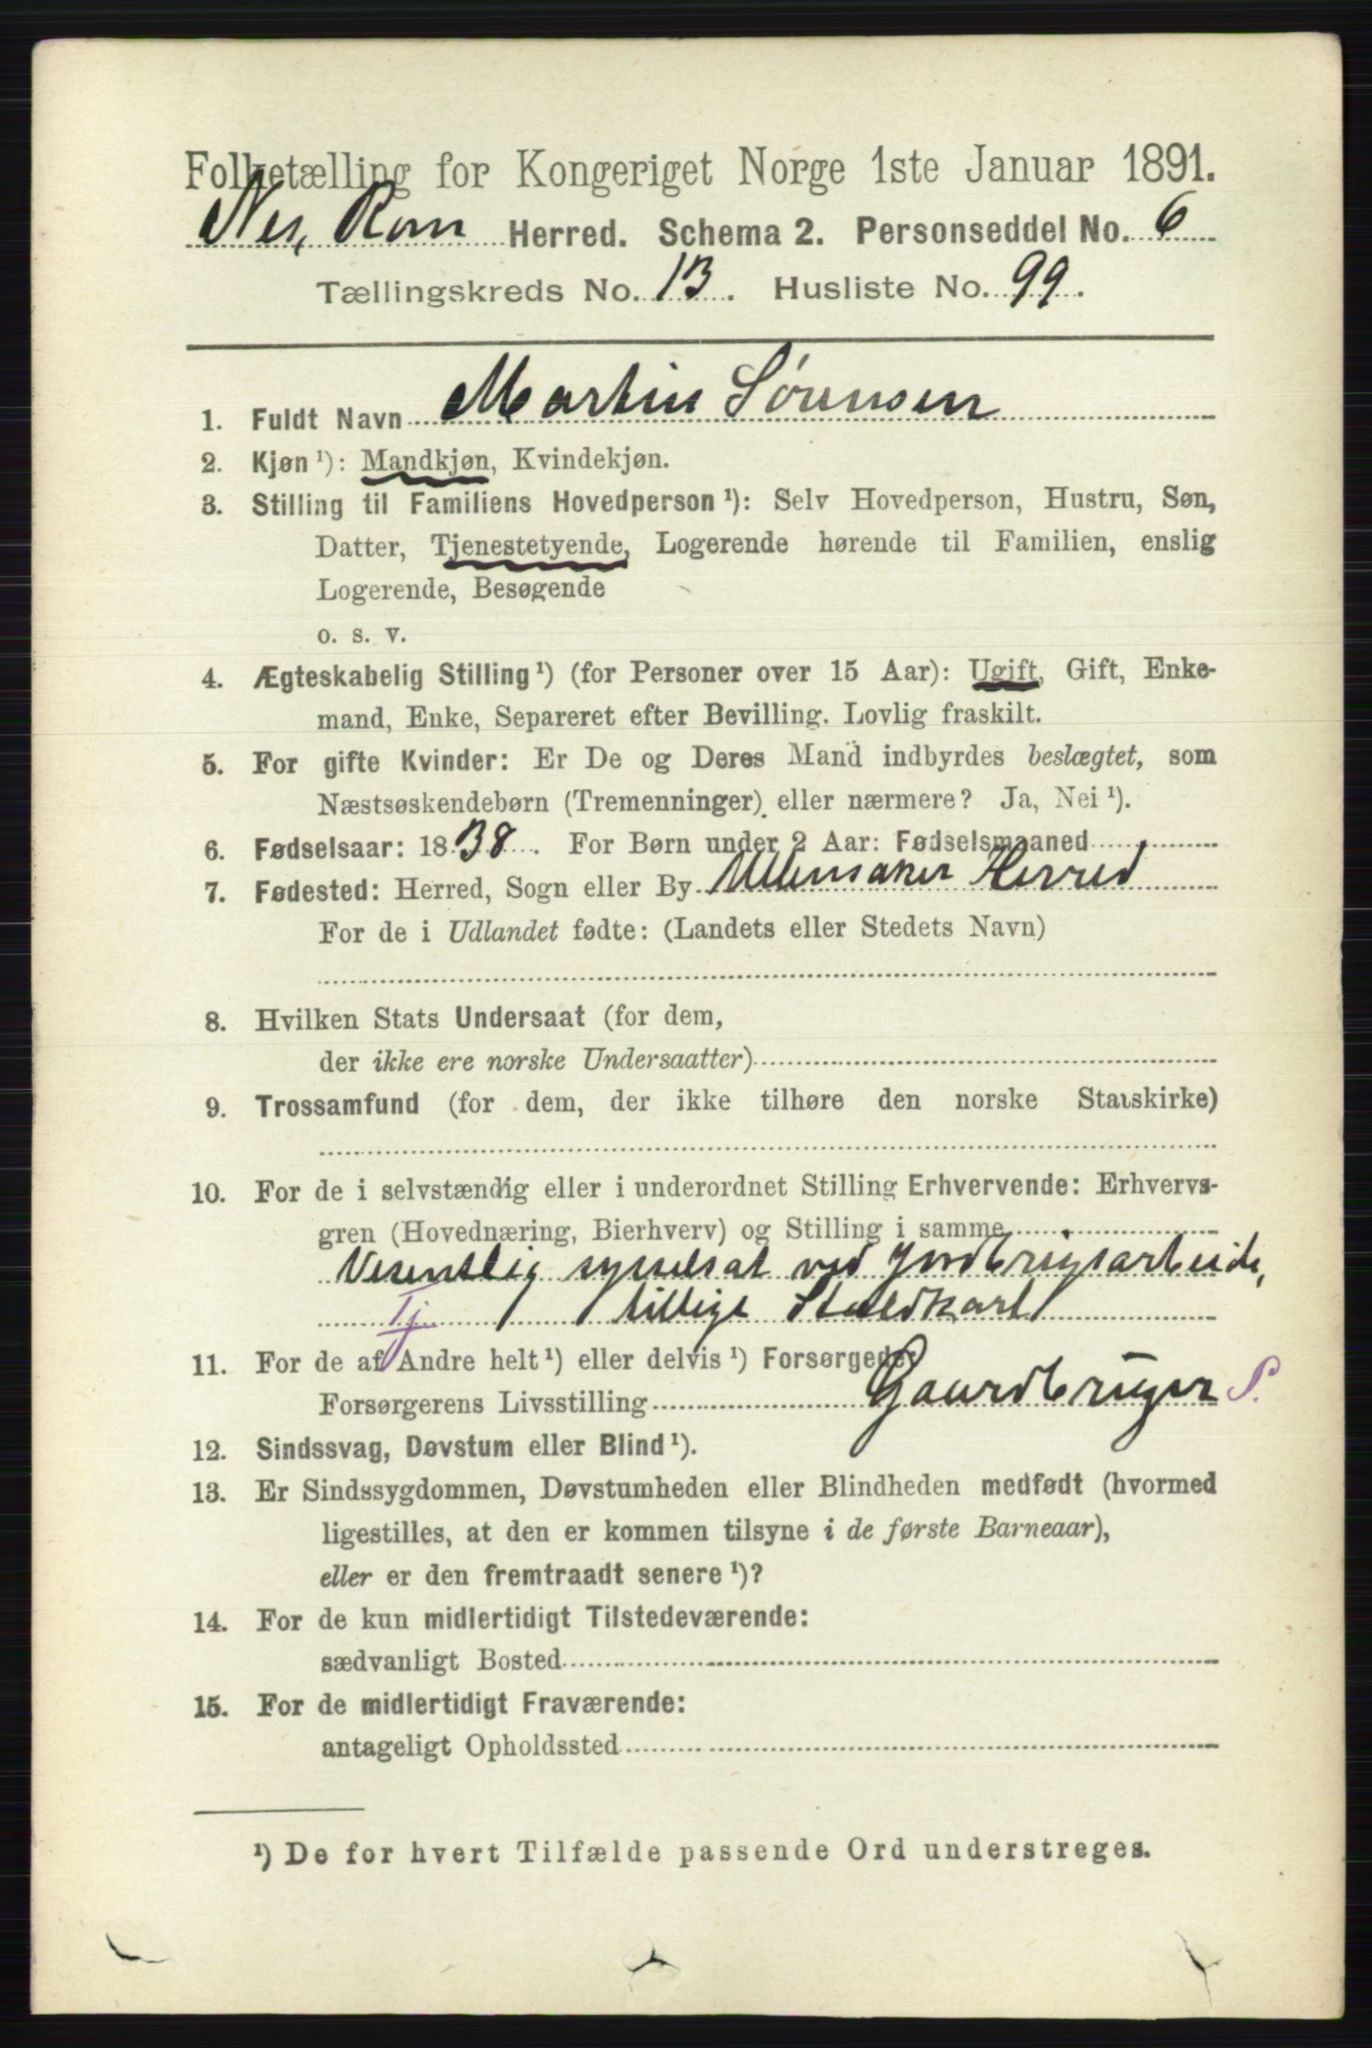 Folketælling for Kongeriget Norge 1ste Januar 1891.
Nes, Rom Herred. Schema 2. Personseddel No. 6
Tællingskreds No. 13. Husliste No. 99.
1. Fuldt Navn Martin Sørensen
2. Kjøn ¹): Mandkjøn, Kvindekjøn.
3. Stilling til Familiens Hovedperson ¹): Selv Hovedperson, Hustru, Søn,
Datter, Tjenestetyende, Logerende hørende til Familien, enslig
Logerende, Besøgende
o. s. v.
4. Ægteskabelig Stilling ¹) (for Personer over 15 Aar): Ugift, Gift, Enke-
mand, Enke, Separeret efter Bevilling. Lovlig fraskilt.
5. For gifte Kvinder: Er De og Deres Mand indbyrdes beslægtet, som
Næstsøskendebørn (Tremenninger) eller nærmere? Ja, Nei ¹).
6. Fødselsaar: 1838. For Børn under 2 Aar: Fødselsmaaned
7. Fødested: Herred, Sogn eller By Ullensaker Herred
For de i Udlandet fødte: (Landets eller Stedets Navn)
8. Hvilken Stats Undersaat (for dem,
der ikke ere norske Undersaatter)
9. Trossamfund (for dem, der ikke tilhøre den norske Statskirke)
10. For de i selvstændig eller i underordnet Stilling Erhvervende: Erhvervs-
gren (Hovednæring, Bierhverv) og Stilling i samme
Vesentlig sysselsat ved Jordbrugsarbeide,
Tj tillige Staldkarl
11. For de af Andre helt ¹) eller delvis ¹) Forsørgede:
Forsørgerens Livsstilling Gaardbruger S.
12. Sindssvag, Døvstum eller Blind ¹).
13. Er Sindssygdommen, Døvstumheden eller Blindheden medfødt (hvormed
ligestilles, at den er kommen tilsyne i de første Barneaar),
eller er den fremtraadt senere ¹)?
14. For de kun midlertidigt Tilstedeværende:
sædvanligt Bosted
15. For de midlertidigt Fraværende:
antageligt Opholdssted
¹) De for hvert Tilfælde passende Ord understreges.